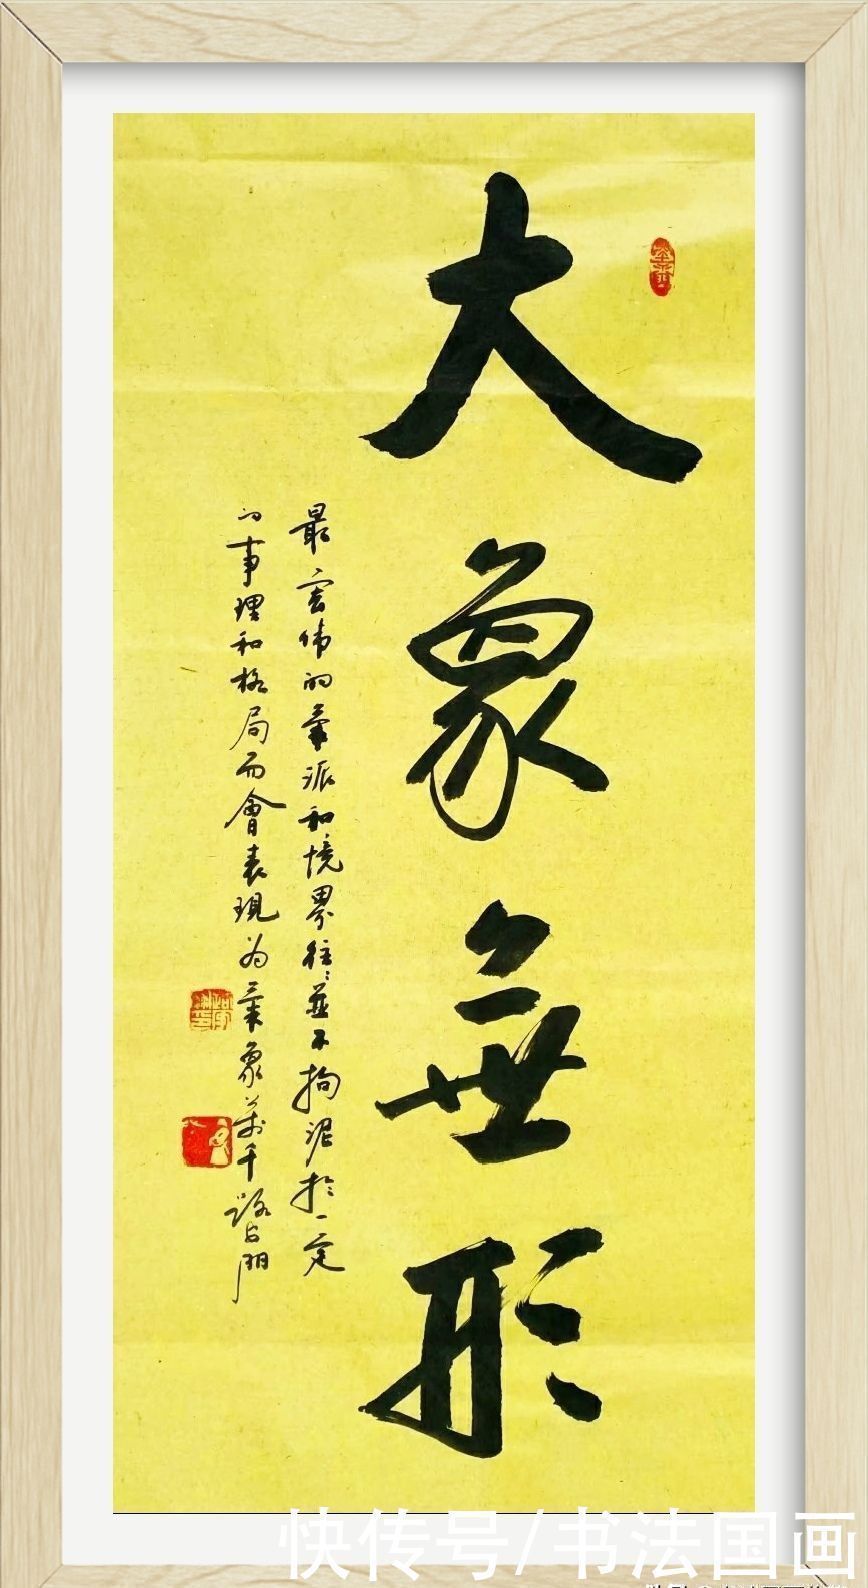 大象無形
最宏偉的氣派和境界往往並不拘泥於一定
的事理和格局而會表現为氣象萬千 路占朋
快传号/书法国画